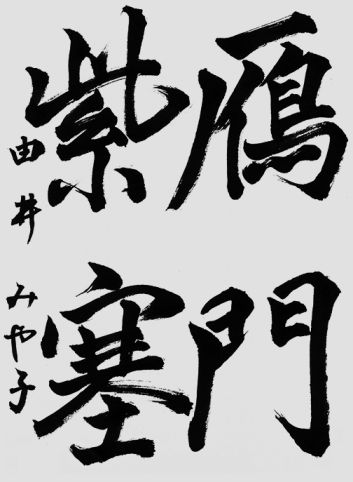 鴈門
紫塞
由井みや子